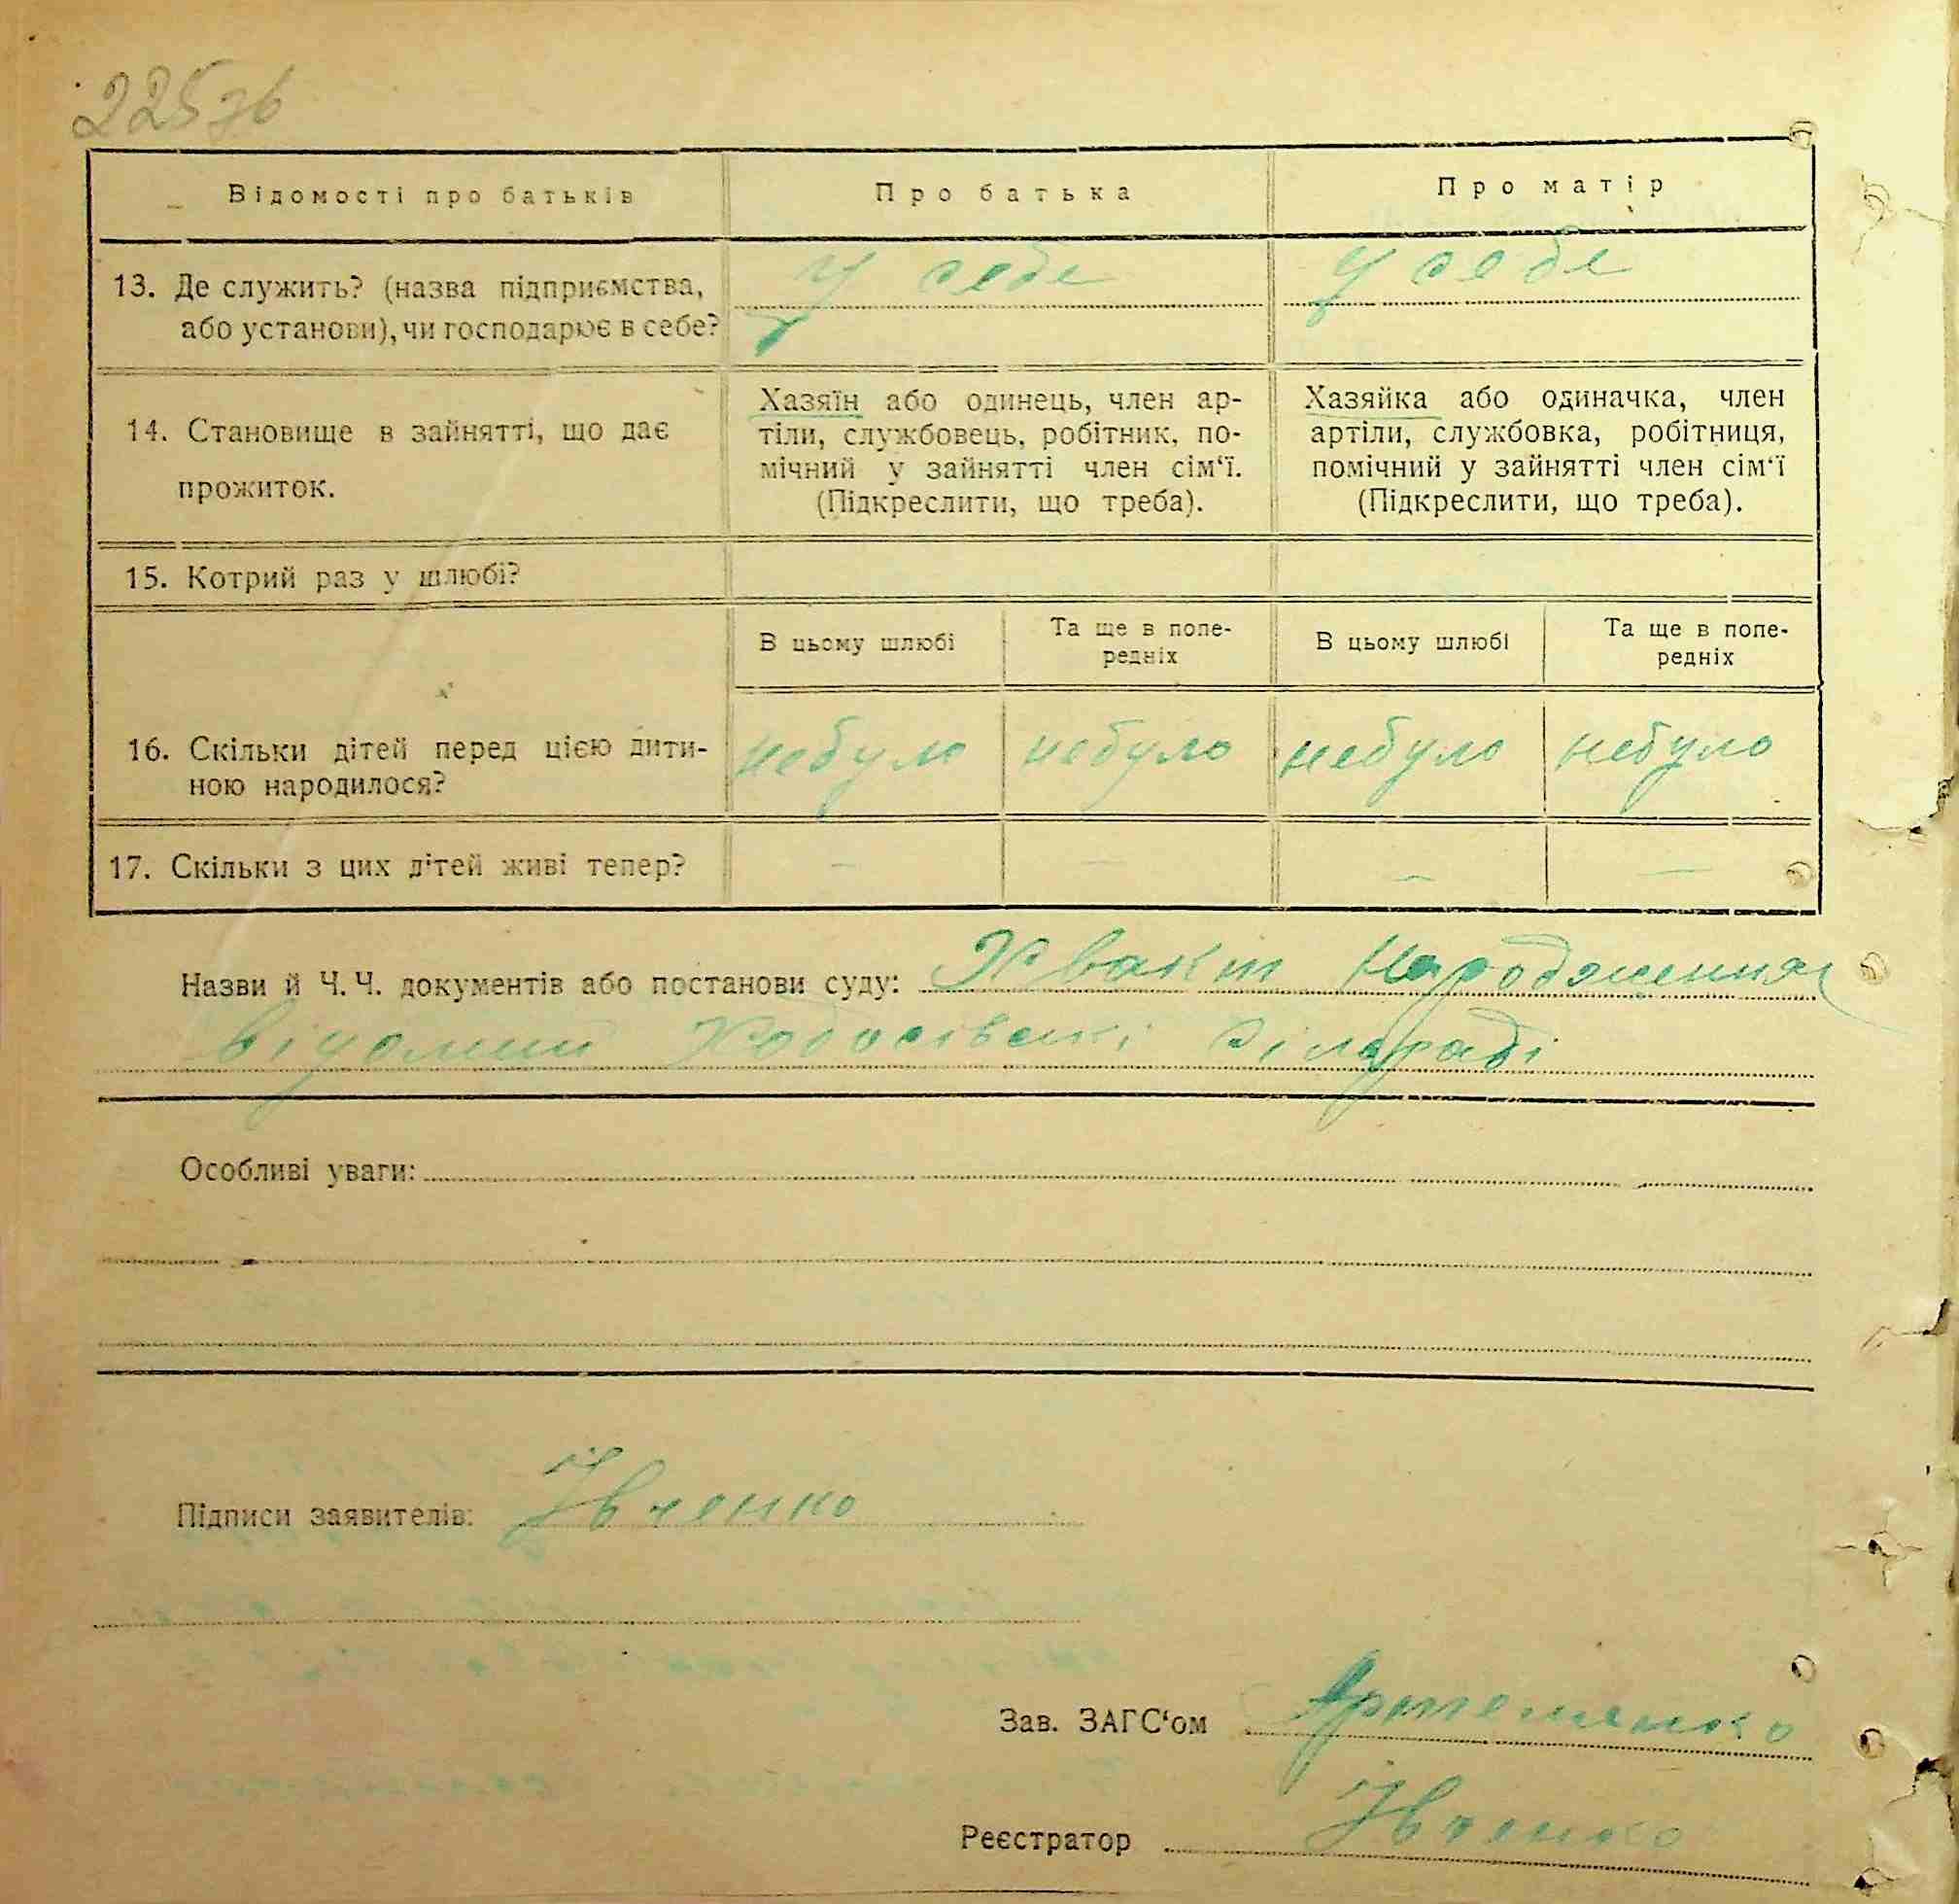 225зв
Відомості про батьків
Про батька
Про матір
13. Де служить? (назва підприємства,
або установи), чи господарює в себе?
У себе
У себе
14. Становище в зайнятті, що дає
прожиток.
Хазяїн або одинець, член ар-
тіли, службовець, робітник, по-
мічний у зайнятті член сім‘ї.
(Підкреслити, що треба).
Хазяйка або одиначка, член
артіли, службовка, робітниця,
помічний у зайнятті член сім‘ї
(Підкреслити, що треба).
15. Котрий раз у шлюбі?
В цьому шлюбі
Та ще в попе-
редніх
В цьому шлюбі
Та ще в попе-
редніх
16. Скільки дітей перед цією дити-
ною народилося?
небуло
небуло
небуло
небуло
17. Скільки з цих дітей живі тепер?
–
–
–
–
Назви й Ч.Ч. документів або постанови суду: народження
відомий сілраді
Особливі уваги:
Підписи заявителів: Івченко
Зав. ЗАГС‘ом Артеменко
Реєстратор Івченко